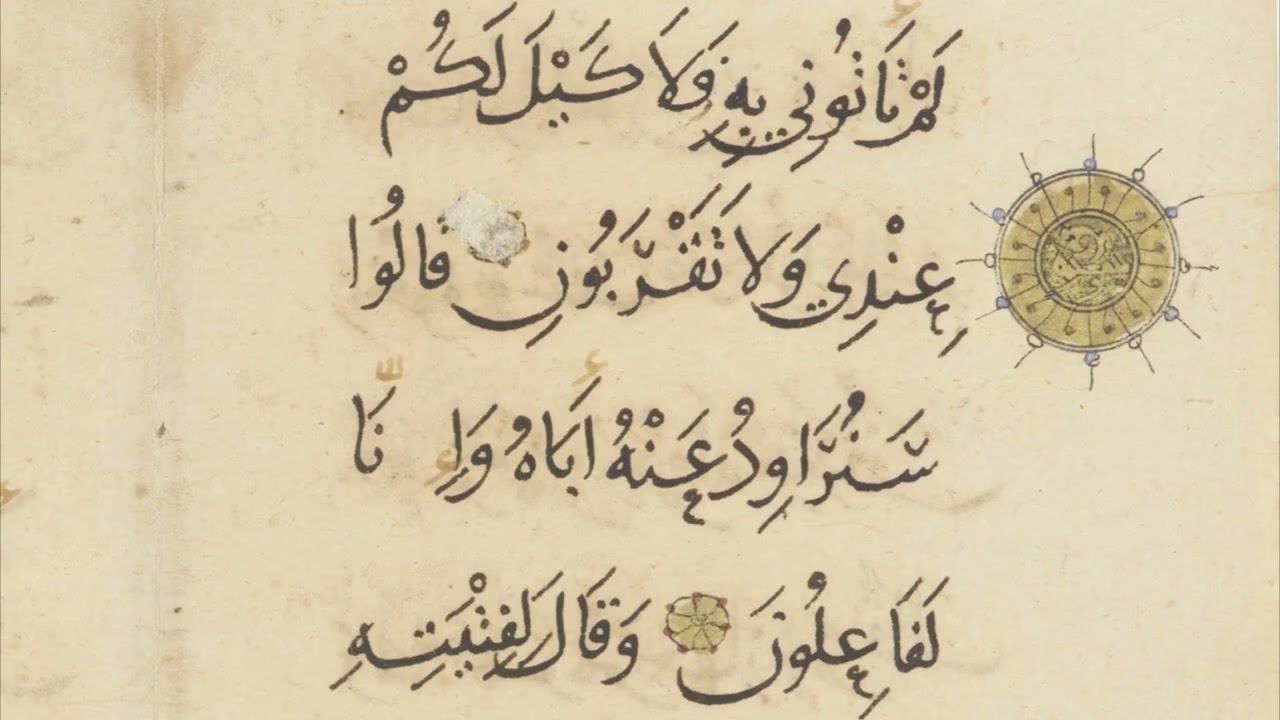 لَمْ تَأْتُونِي بِهِ فَلَا كَيْلَ لَكُمْ
عِنْدِي وَلَا تَقْرَبُونِ قَالُوا
سَنُرَاوِدُ عَنْهُ أَبَاهُ وَإِنَّا
لَفَاعِلُونَ وَقَالَ لِفِتْيَتِهِ